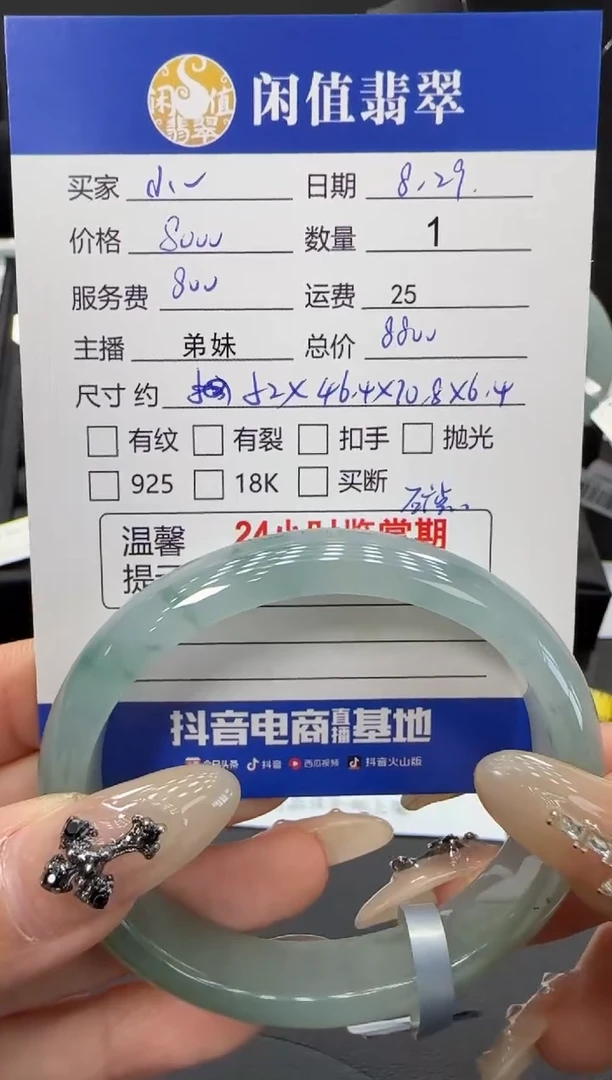 闲值翡翠
闲值翡翠
买家 小一 日期 8.29.
价格 8000 数量 1
服务费 800 运费 25
主播 弟妹 总价 8800
尺寸 约 52X46.4X10.8X6.4
有纹 有裂 扣手 抛光
925 18K 买断
石纹、
温馨 24小时鉴赏期
提示
抖音电商直播基地
今日头条 抖音 西瓜视频 抖音火山版